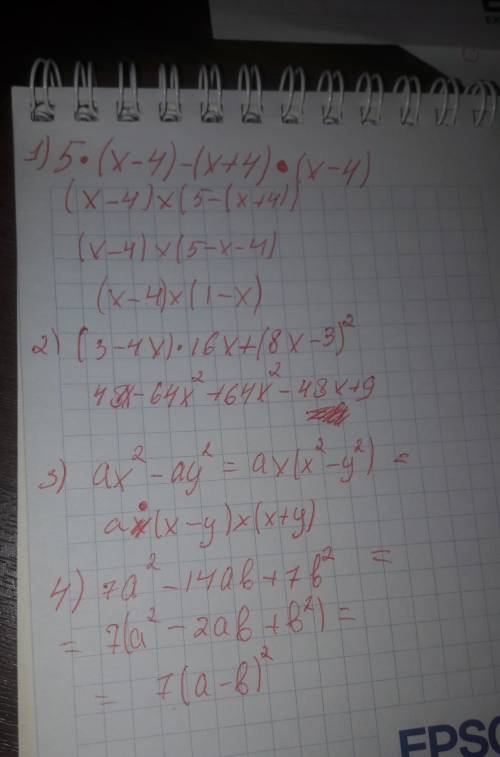 1) 5•(x-4)-(x+4)•(x-4)
(x-4)x(5-(x+4))
(x-4)x(5-x-4)
(x-4)x(1-x)
2) (3-4x)•16x+(8x-3)²
48x-64x²+64x²-48x+9
3) ax²-ay²=ax(x²-y²)=
a•(x-y)x(x+y)
4) 7a²-14ab+7b² =
= 7(a²-2ab+b²)=
= 7(a-b)²
EPSO